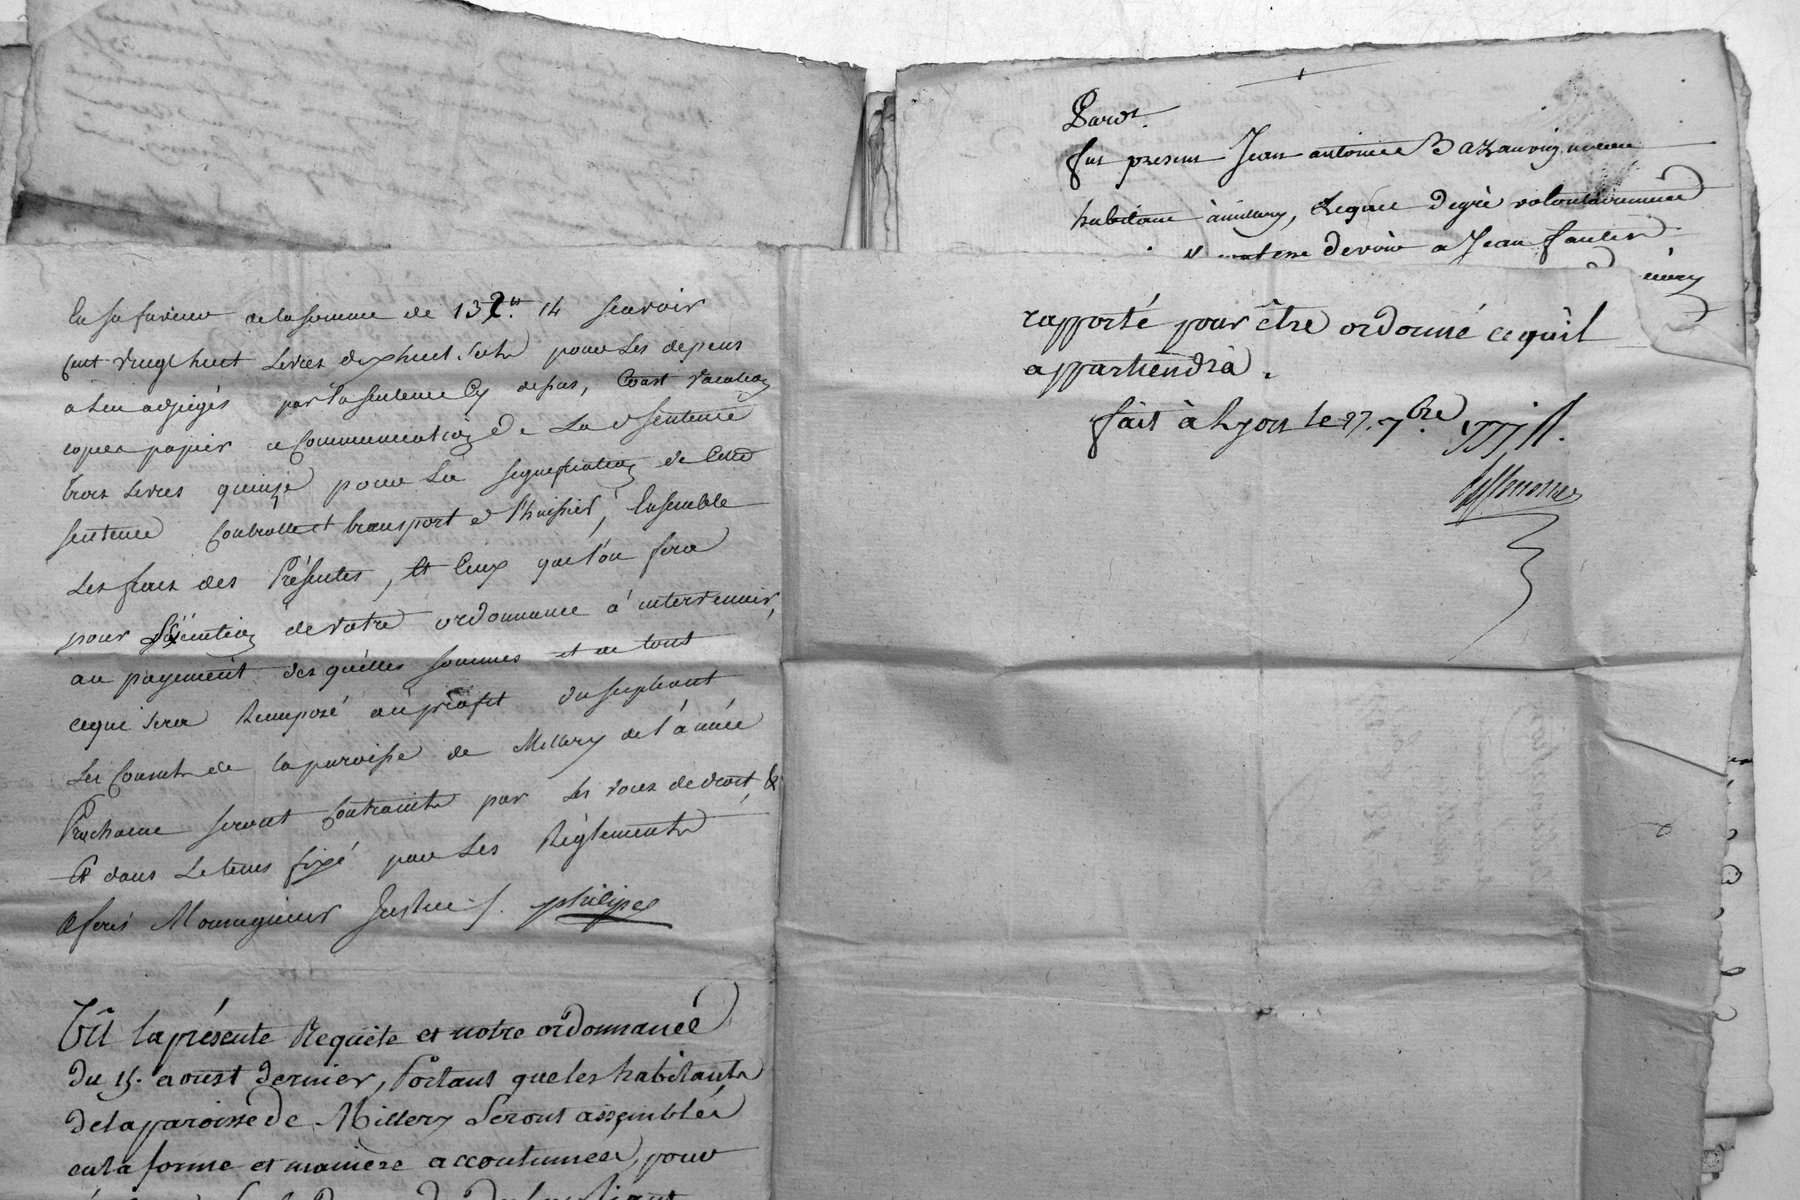 En sa faveur de la somme de 132.tt 14 scavoir
Cent vingt huit Livres dixhuit sols pour Les depens
a Lui adjugés par la sentence Cy dessus,
copie papier et Communication de La d sentence
trois Livres quinze pour La signification de Cette
sentence Controlle et transport d'huissier, Ensemble
Les frais des Présentes, Et Ceux que l'on fera
pour L'éxécution de votre ordonnance à intervenir,
au payement des quelles sommes et de tout
ce qui sera au profit du supliant
Les Consuls de la paroisse de Millery de l'année
Prochaine seront Contraints par Les voies de droit, &
Et dans Le tems fixé par Les Règlements
Monseigneur Justice philipe
Vû la présente Requête et notre ordonnance
du 15. aoust dernier, Portant que les habitants
de la paroisse de Millery Seront assemblés
en la forme et manière accoutumée, pour
Pardt.
fut present Jean antoine
habitant à millery, Lequel de gré volontairement
devoir a Jean
rapporté pour être ordonné ce qu'il
appartiendrà.
fait à Lyon le 27. 7bre